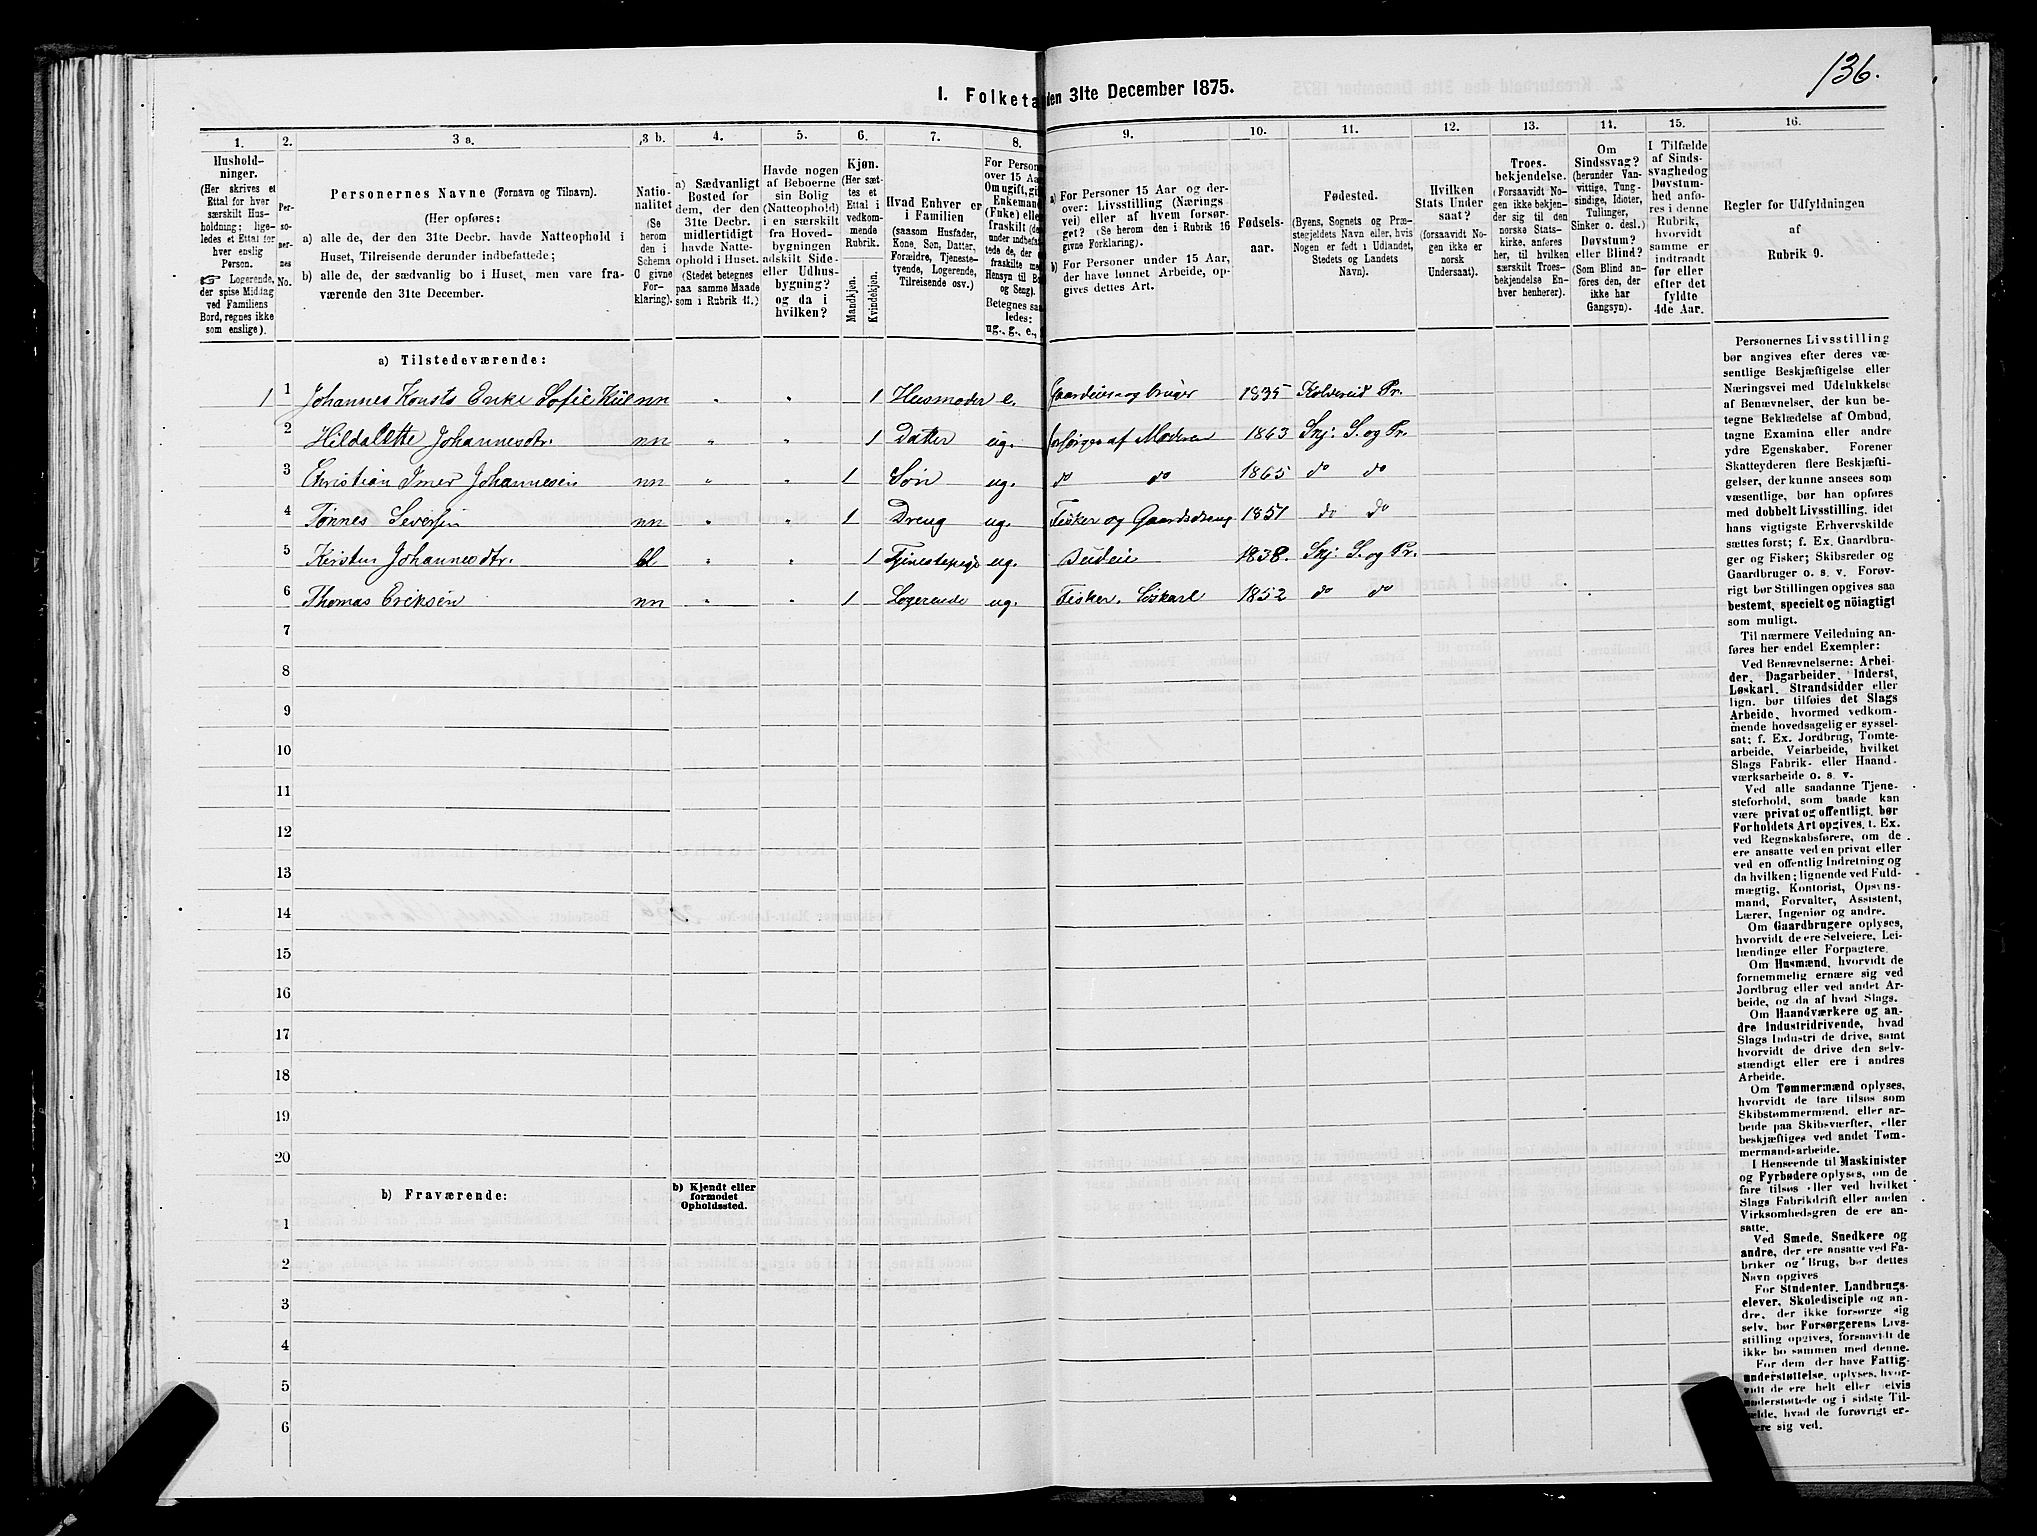 136.
I. Folketa den 31te December 1875.
1.
Hushold-
ninger.
(Her skrives et
Ettal for hver
særskilt Hus-
holdning; lige-
ledes et Ettal for
hver enslig
Person.
Logerende,
der spise Middag
ved Familiens
Bord, regnes ikke
som enslige).
2.
Per-
so-
ner-
nes
No.
3 a.
Personernes Navne (Fornavn og Tilnavn).
(Her opføres:
a) alle de, der den 31te Decbr. havde Natteophold i
Huset, Tilreisende derunder indbefattede;
b) alle de, der sædvanlig bo i Huset, men vare fra-
værende den 31te December.
3 b.
Natio-
nalitet
(Se
herom
den i
Schema
O givne
For-
klaring).
4.
a) Sædvanligt
Bosted for
dem, der den
31te Decbr.
midlertidigt
havde Natte-
ophold i Huset.
(Stedet betegnes
paa samme Maade
som i Rubrik 11.)
5.
Havde nogen
af Beboerne
sin Bolig
(Natteophold)
i en særskilt
fra Hoved-
bygningen
adskilt Side-
eller Udhus-
bygning?
og da i
hvilken?
6.
Kjøn.
(Her sæt-
tes et
Ettal i
vedkom-
mende
Rubrik.
Mandkjøn.
Kvindekjøn.
7.
Hvad Enhver er
i Familien
(saasom Husfader,
Kone, Søn, Datter,
Forældre, Tjeneste-
tyende, Logerende,
Tilreisende osv.)
8.
For Person
over 15 Aa
Om ugift, gif
Enkeman
(Enke) elle
fraskilt (de
under indbefat
tede de, der
fraskilte m
Hensyn til Bo
og Seng).
Betegnes saa
ledes:
ug., g., e.,
9.
a) For Personer 15 Aar og der-
over: Livsstilling (Nærings
vei) eller af hvem forsør-
get? (Se herom den i Rubrik 16
givne Forklaring).
b) For Personer under 15 Aar,
der have lønnet Arbeide, op-
gives dettes Art.
10.
Fødsels-
aar.
11.
Fødested.
(Byens, Sognets og Præ-
stegjeldets Navn eller, hvis
Nogen er født i Udlandet,
Stedets og Landets
Navn).
12.
Hvilken
Stats Under
saat?
(forsaavidt No-
gen ikke er
norsk
Undersaat).
13.
Troes-
bekjendelse.
(Forsaavidt No-
gen ikke bekjen-
der sig til den
norske Stats-
kirke, anføres
her, til hvilken
særskilt Troes-
bekjendelse En-
hver henhører).
14.
Om
Sindssvag?
(herunder Van-
vittige, Tung-
sindige, Idioter,
Tullinger,
Sinker o. desl.)
Døvstum?
eller Blind?
(Som Blind an-
føres den, der
ikke har
Gangsyn).
15.
I Tilfælde
af Sinds-
svaghed og
Døvstum-
hed anfø-
res i denne
Rubrik,
hvorvidt
samme er
indtraadt
før eller
efter det
fyldte
4de Aar.
16.
Regler for Udfyldningen
af
Rubrik 9.
a) Tilstedeværende:
1 1 Johannes Konsts Enke Sofie nn " " 1 Husmoder e. Gaardeier og bruger 1835 Kolvereid Pr.
2 Hildalette Johannesdtr. nn " " 1 Datter ug. forsørges af Moderen 1863 S. og Pr.
3 Christian Imer Johannesen nn " " 1 Søn ug. do do 1865 do do
4 Tønnes Seversen nn " " 1 Dreng ug. Fisker og Gaardsdreng 1851 do do
5 Kirsten Johannesdtr. bl " " 1 Tjenestepige ug. Budeie 1838. S. og Pr.
6 Thomas Eriksen nn " " 1 Logerende ug. Fisker. Løskarl 1852 do do
7
8
9
10
11
12
13
14
15
16
17
18
19
20
b) Fraværende:
b) Kjendt eller
formodet
Opholdssted.
1
2
3
4
5
6
Personernes Livsstilling
bør angives efter deres væ-
sentlige Beskjæftigelse eller
Næringsvei med Udelukkelse
af Benævnelser, der kun be-
tegne Beklædelse af Ombud,
tagne Examina eller andre
ydre Egenskaber. Forener
Skatteyderen flere Beskjæfti-
gelser, der kunne ansees som
væsentlige, bør han opføres
med dobbelt Livsstilling, idet
hans vigtigste Erhvervskilde
sættes først; f. Ex. Gaardbru-
ger og Fisker; Skibsreder og
Gaardbruger o. s. v. Forøv-
rigt bør Stillingen opgives saa
bestemt, specielt og nöiagtigt
som muligt.
Til nærmere Veiledning an-
føres her endel Exempler:
Ved Benævnelserne: Arbei-
der, Dagarbeider, Inderst,
Løskarl, Strandsidder eller
lign. bør tilføies det Slags
Arbeide, hvormed vedkom-
mende hovedsagelig er syssel-
sat; f. Ex. Jordbrug, Tomte-
arbeide, Veiarbeide, hvilket
Slags Fabrik- eller Haand-
værksarbeide o. s. v.
Ved alle saadanne Tjene-
steforhold, som baade kan
være privat og offentligt, bør
Forholdets Art opgives, t. Ex.
ved Regnskabsførere, om de
ere ansatte ved en privat eller
ved en offentlig Indretning og
da hvilken; lignende ved Fuld-
mægtig, Kontorist, Opsyns-
mand, Forvalter, Assistent,
Lærer, Ingeniør og andre.
Om Gaardbrugere oplyses,
hvorvidt de ere Selveiere, Lei-
lændinge eller Forpagtere.
Om Husmænd, hvorvidt de
fornemmelig ernære sig ved
Jordbrug eller ved andet Ar-
beide, og da af hvad Slags.
Om Haandværkere og an-
dre Industridrivende, hvad
Slags Industri de drive, samt
hvorvidt de drive den selv-
stændigt eller ere i andres
Arbeide.
Om Tømmermænd oplyses,
hvorvidt de fare tilsøs som
Skibstømmermænd, eller ar-
beide paa Skibsværfter, eller
beskjæftiges ved andet Tøm-
mermandsarbeide.
I Henseende til Maskinister
og Fyrbødere oplyses, om de
fare tilsøs eller ved hvilket
Slags Fabrikdrift eller anden
Virksomhedsgren de ere an-
satte.
Ved Smede, Snedkere og
andre, der ere ansatte ved Fa-
briker og Brug, bør dettes
Navn opgives
For Studenter, Landbrugs-
elever, Skoledisciple og an-
dre, der ikke forsørge sig
selv, bør Forsørgerens Livs-
stilling opgives, forsaavidt de
ikke bo sammen med denne.
For dem, der have Fattig-
understøttelse, oplyses, hvor-
vidt de ere helt eller delvis
understøttede og i sidste Til-
fælde, hvad de forøvrigt er-
nære sig ved.